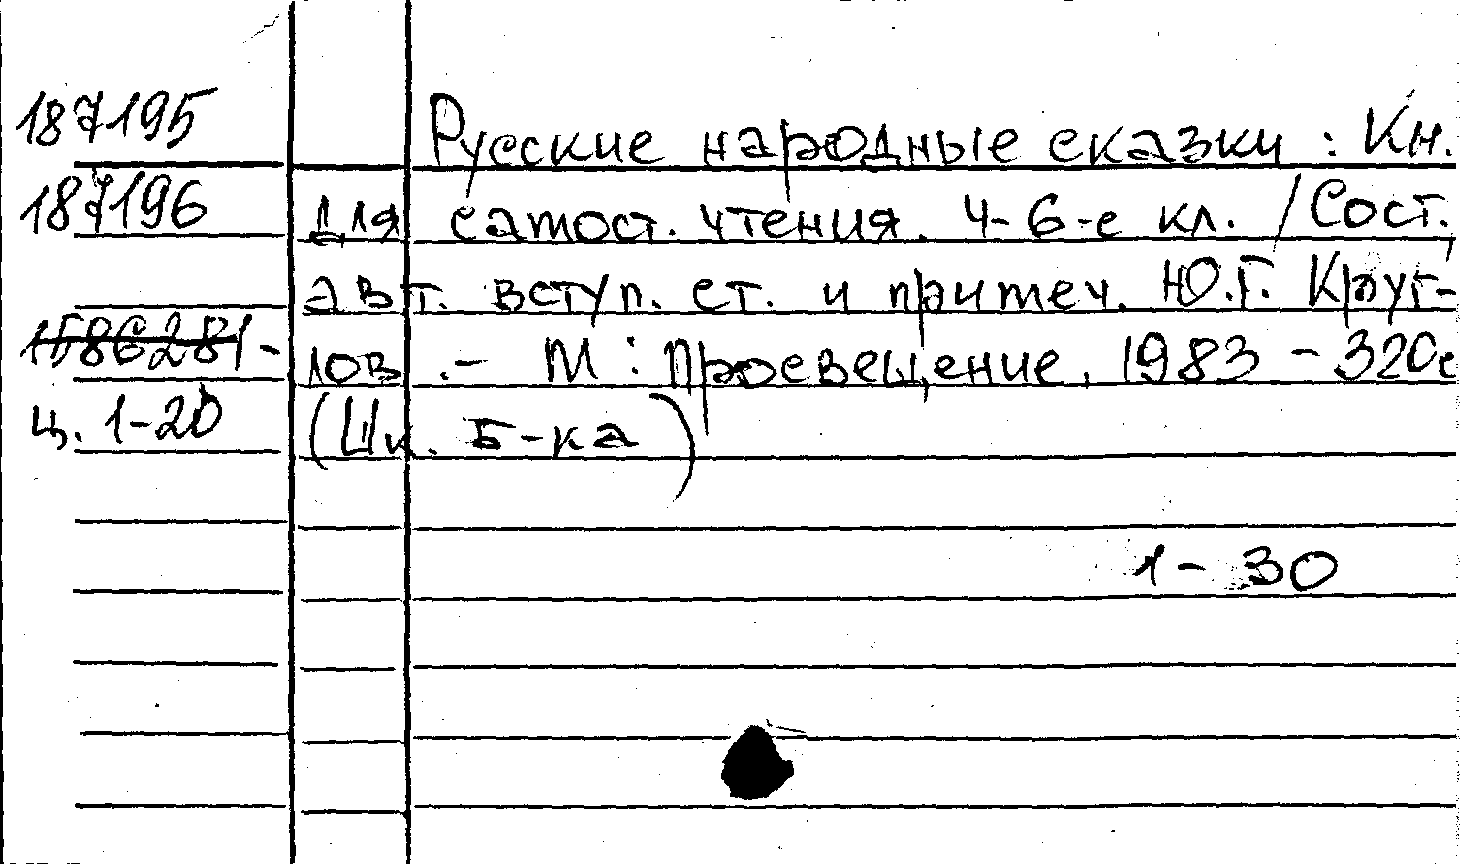 187195 Русские народные сказки : Кн.
187196 для самост. чтения. 4-6-е кл. / Сост.,
авт. вступ. ст. и примеч. Ю.Г. Круг-
1586281- лов. - М : Просвещение, 1983 - 320с
ц. 1-20 (Шк. б-ка)
1- 30